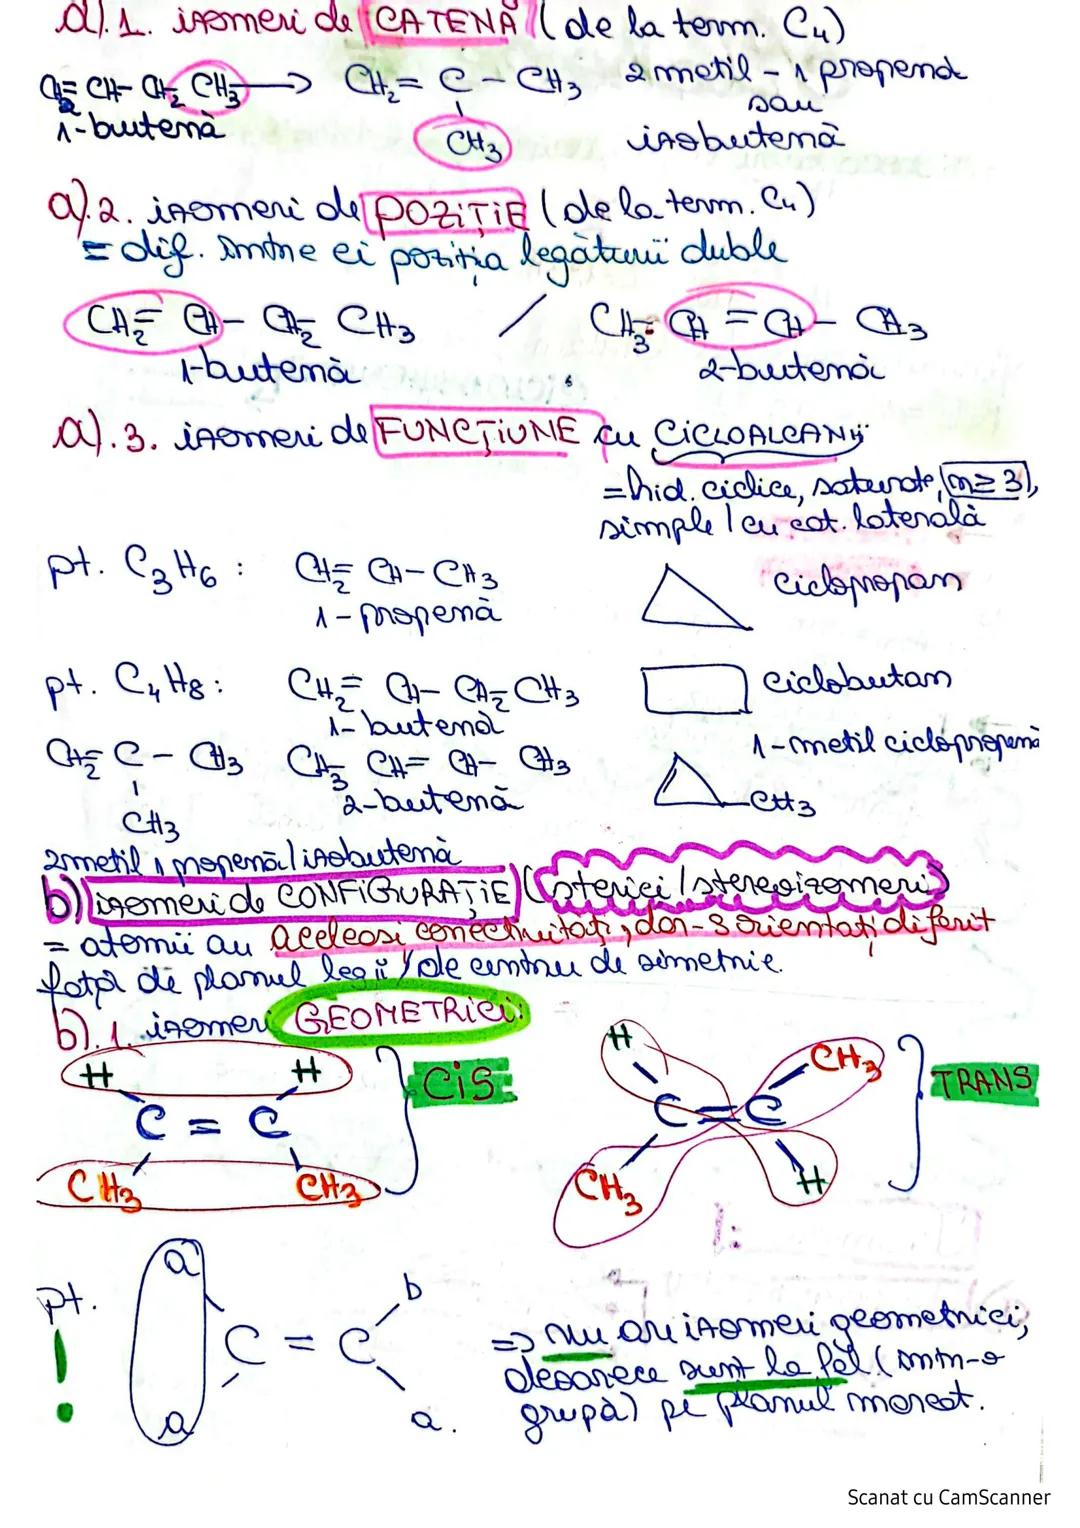 a).1. izomeri de CATENĂ (de la term. C4)
CH2=CH-CH2-CH3 → CH2=C-CH3 2 metil-1 propenă
sau
1-butenă CH3 izobutenă
a).2. izomeri de POZIȚIE (de la term. C4)
= dif. între ei poziția legăturii duble
CH2=CH-CH2-CH3 / CH3-CH=CH-CH3
1-butenă 2-butenă
a).3. izomeri de FUNCȚIUNE cu CICLOALCANII
=hid. ciclice, saturate, n≥3,
simple / cu cat. laterală
pt. C3H6: CH2=CH-CH3 ciclopropan
1-propenă
pt. C4H8: CH2=CH-CH2-CH3 ciclobutan
1-butenă
CH2=C-CH3 CH3-CH=CH-CH3 1-metil ciclopropenă
2-butenă CH3
CH3
2metil 1 propenă/izobutenă
b) izomeri de CONFIGURAȚIE (sterici/stereoizomeri)
= atomii au aceleași conectivități, dar-s orientați diferit
față de planul leg ii / de centru de simetrie.
b).1. izomeri GEOMETRICI:
H H CIS H CH3 TRANS
C=C C=C
CH3 CH3 CH3 H
a
pt. b
! C=C => nu are izomeri geometrici,
deoarece sunt la fel (într-o
a a. grupă) pe planul
Scanat cu CamScanner